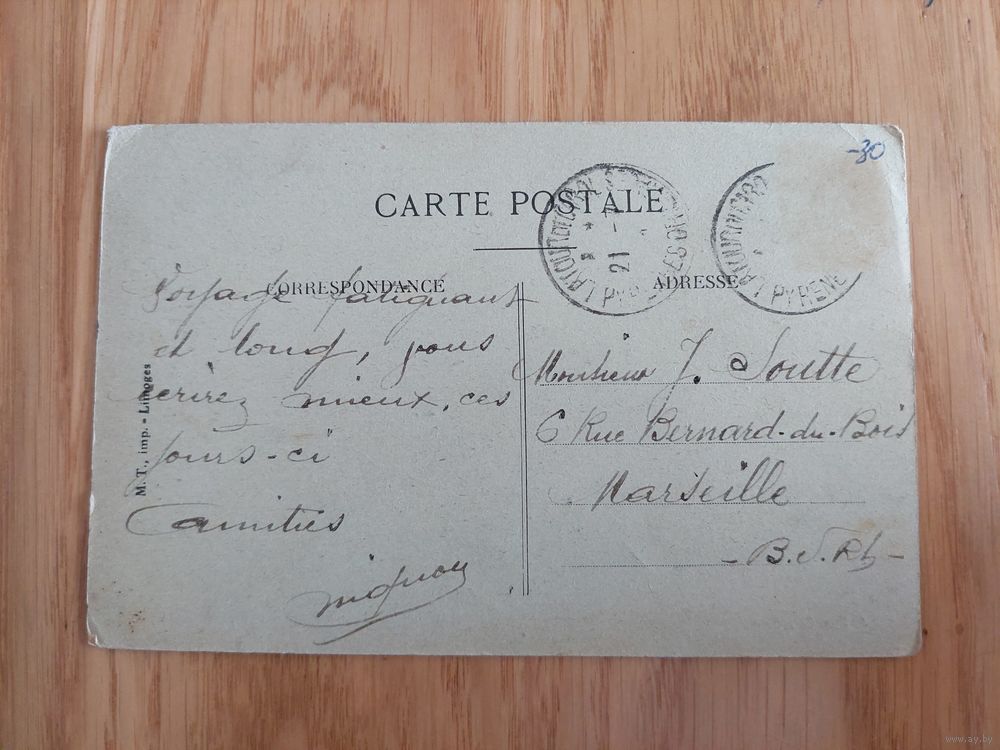 -30
CARTE POSTALE
CORRESPONDANCE
ADRESSE
21
PYRENE
Voyage fatiguant
et long, vous
écrirez mieux, ces
jours-ci
amitiés
mignon
Monsieur J. Soutte
6 Rue Bernard-du-Bois
Marseille
- B. d. Rh -
M. T., imp. - Limoges
www.ay.by